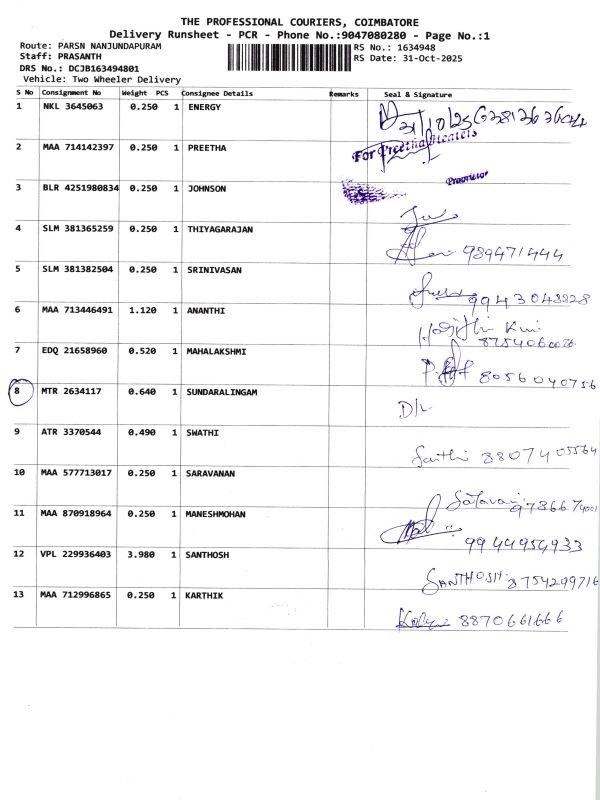 THE PROFESSIONAL COURIERS, COIMBATORE
Delivery Runsheet - PCR - Phone No.:9047080280 - Page No.:1
Route: PARSN NANJUNDAPURAM
RS No.: 1634948
Staff: PRASANTH
RS Date: 31-Oct-2025
DRS No.: DCJB163494801
Vehicle: Two Wheeler Delivery
S No Consignment No Weight PCS Consignee Details Remarks Seal & Signature
1 NKL 3645063 0.250 1 ENERGY 31/10/25
2 MAA 714142397 0.250 1 PREETHA For Preetha Heaters
Proprietor
3 BLR 4251980834 0.250 1 JOHNSON
4 SLM 381365259 0.250 1 THIYAGARAJAN 989471444
5 SLM 381382504 0.250 1 SRINIVASAN
6 MAA 713446491 1.120 1 ANANTHI
7 EDQ 21658960 0.520 1 MAHALAKSHMI 8056040756
8 MTR 2634117 0.640 1 SUNDARALINGAM D/L
9 ATR 3370544 0.490 1 SWATHI
10 MAA 577713017 0.250 1 SARAVANAN
11 MAA 870918964 0.250 1 MANESHMOHAN 9944954933
12 VPL 229936403 3.980 1 SANTHOSH SANTHOSH 8754299716
13 MAA 712996865 0.250 1 KARTHIK 8870661666